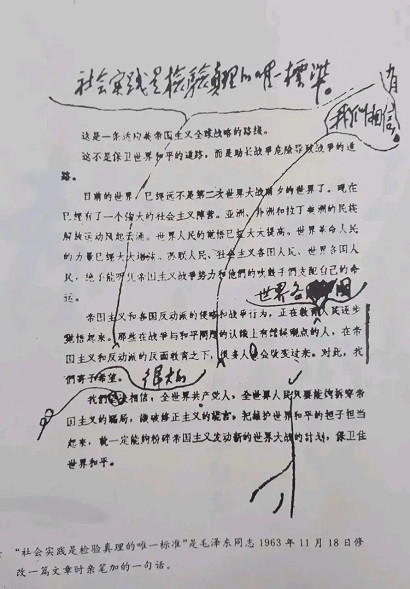 社会实践是检验真理的唯一标准。
有
我们相信，
这是一条适应美帝国主义全球战略的路线。
这不是保卫世界和平的道路，而是助长战争危险导致战争的道
路。
目前的世界，已经远不是第二次世界大战前夕的世界了。现在
已经有了一个强大的社会主义阵营。亚洲、非洲和拉丁美洲的民族
解放运动风起云涌。世界人民的觉悟已经大大提高。世界革命人民
的力量已经大大增强。苏联人民、社会主义各国人民、世界各国人
民，绝不能听凭帝国主义战争势力和他们的吹鼓手们支配自己的命
运。
世界各国
帝国主义和各国反动派的侵略和战争行为，正在教育人民逐步
觉悟起来。那些在战争与和平问题的认识上有错误观点的人，在帝
国主义和反动派的反面教育之下，很多人会改变过来。对此，我
们寄予希望。
很大的
我们相信，全世界共产党人，全世界人民只要能够拆穿帝
国主义的骗局，识破修正主义的谎言。把维护世界和平的担子担当
起来，就一定能够粉碎帝国主义发动新的世界大战的计划，保卫住
世界和平。
“社会实践是检验真理的唯一标准”是毛泽东同志1963年11月18日修
改一篇文章时亲笔加的一句话。